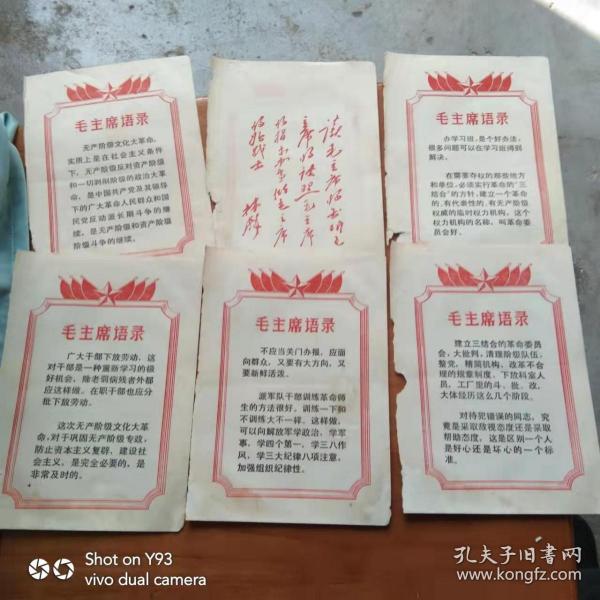 毛主席语录
无产阶级文化大革命,
实质上是在社会主义条件
下,无产阶级反对资产阶级
和一切剥削阶级的政治大革
命,是中国共产党及其领导
下的广大革命人民群众和国
民党反动派长期斗争的继
续,是无产阶级和资产阶级
阶级斗争的继续。
读毛主席的书听毛
主席的话照毛主席
的指示办事做毛主席
的好战士
林彪
毛主席语录
办学习班,是个好办法,
很多问题可以在学习班得到
解决。
在需要夺权的那些地方
和单位,必须实行革命的“三
结合”的方针,建立一个革命
的、有代表性的、有无产阶级
权威的临时权力机构。这个
权力机构的名称,叫革命委
员会好。
毛主席语录
广大干部下放劳动,这
对干部是一种重新学习的极
好机会,除老弱病残者外都
应这样做。在职干部也应分
批下放劳动。
这次无产阶级文化大革
命,对于巩固无产阶级专政,
防止资本主义复辟,建设社
会主义,是完全必要的,是
非常及时的。
毛主席语录
不应当关门办报,应面
向群众,又要有大方向,又
要新鲜活泼。
派军队干部训练革命师
生的方法很好。训练一下和
不训练大不一样。这样做,
可以向解放军学政治,学军
事,学四个第一,学三八作
风,学三大纪律八项注意,
加强组织纪律性。
毛主席语录
建立三结合的革命委员
会,大批判,清理阶级队伍,
整党,精简机构、改革不合
理的规章制度、下放科室人
员,工厂里的斗、批、改,
大体经历这么几个阶段。
对待犯错误的同志,究
竟是采取敌视态度还是采取
帮助态度,这是区别一个人
是好心还是坏心的一个标
准。
Shot on Y93
vivo dual camera
孔夫子旧书网
www.kongfz.com